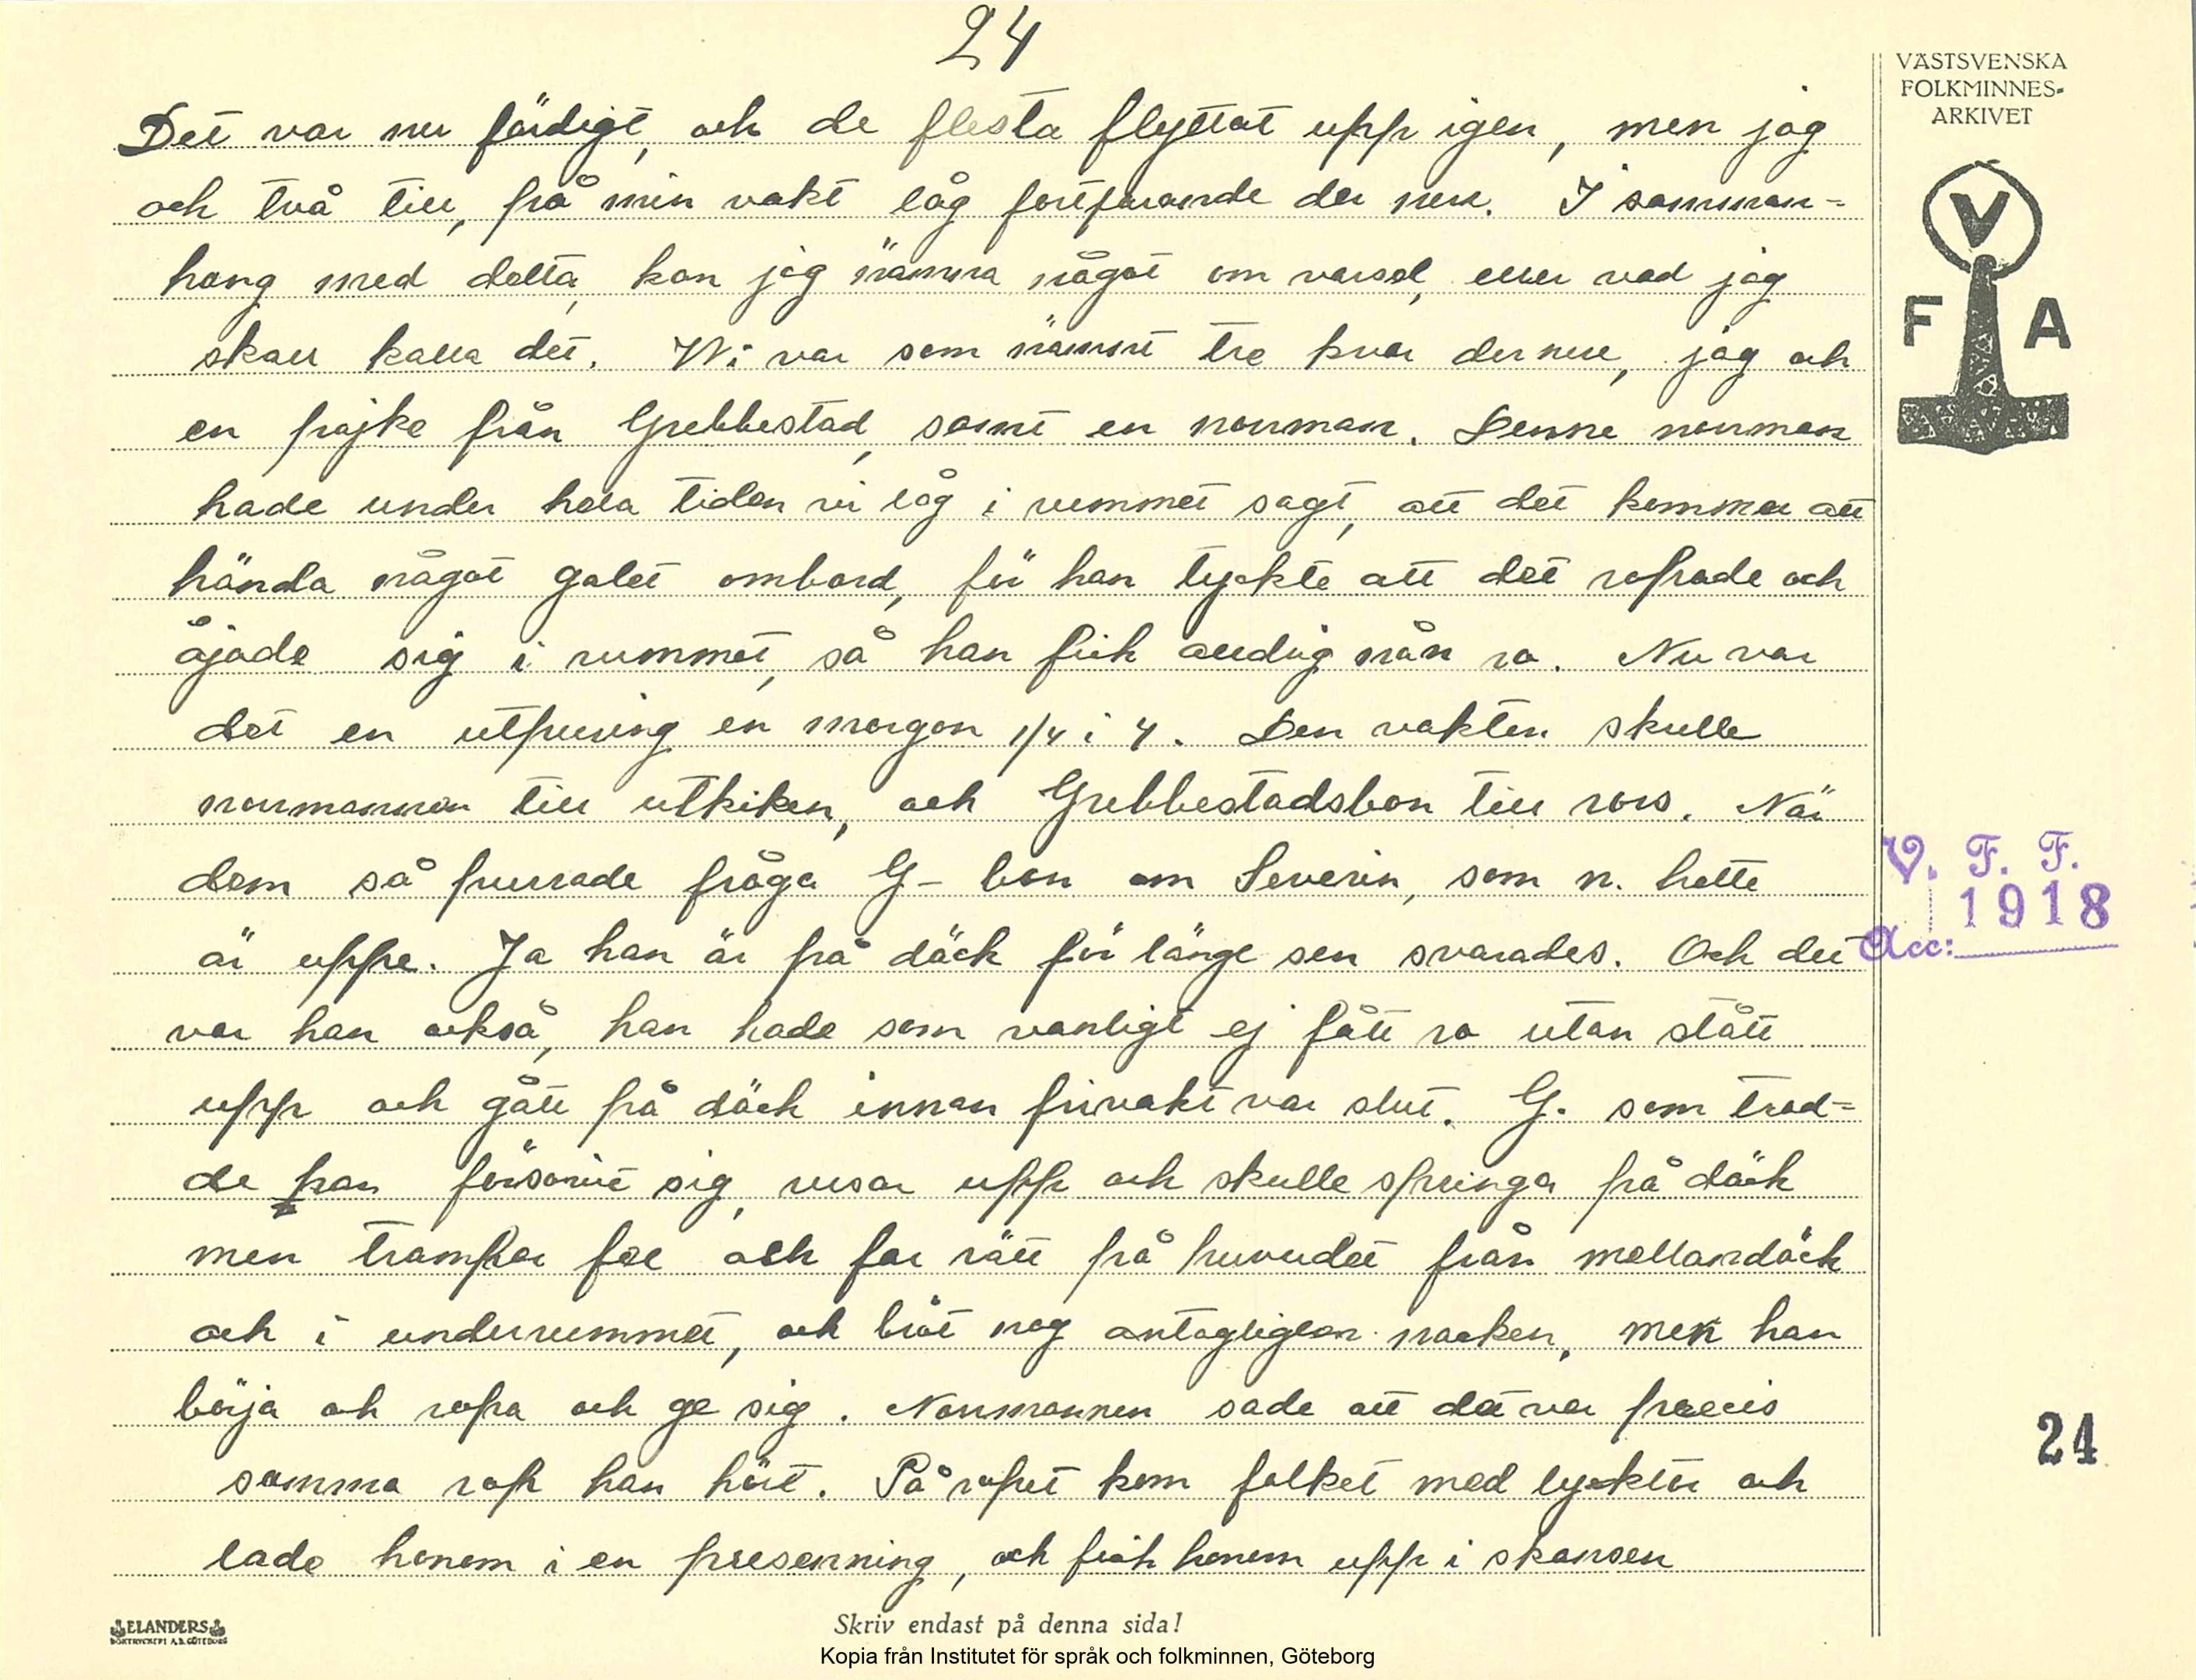 24
VÄSTSVENSKA
FOLKMINNES-
ARKIVET
V
F A
Det var nu färdigt, och de flesta flyttat upp igen, men jag
och två till, på min vakt låg fortfarande der nere. I samman-
hang med detta kan jag nämna något om varsel, eller vad jag
skall kalla det. Wi var som nämnt tre kvar der nere, jag och
en pojke från Grebbestad, samt en norman. Denne norman
hade under hela tiden vi låg i rummet sagt, att det kommer att
hända något galet ombord, för han tyckte att det ropade och
åjade sig i rummet, så han fick aldrig nån ro. Nu var
det en utpurring en morgon 1/4 i 4. Den vakten skulle
normannen till utkiken, och Grebbestadsbon till rors. När
dem så purrade fråga G- bon om Severin, som n. hette
är uppe. Ja han är på däck för länge sen svarades. Och det
var han också, han hade som vanligt ej fått ro utan stått
upp och gått på däck innan frivakt var slut. G. som trod-
de han försovit sig, rusar upp och skulle springa på däck
men trampar fel och far rätt på huvudet från mellandäck
och i underrummet, och bröt nog antagligen nacken, men han
börja och ropa och ge sig. Normannen sade att det var precis
samma rop han hört. På ropet kom folket med lycktor och
lade honom i en presenning, och fick honom upp i skansen
V. F. F.
1918
Acc:
24
ELANDERS
BOKTRYCKERI A.B. GÖTEBORG
Skriv endast på denna sida!
Kopia från Institutet för språk och folkminnen, Göteborg